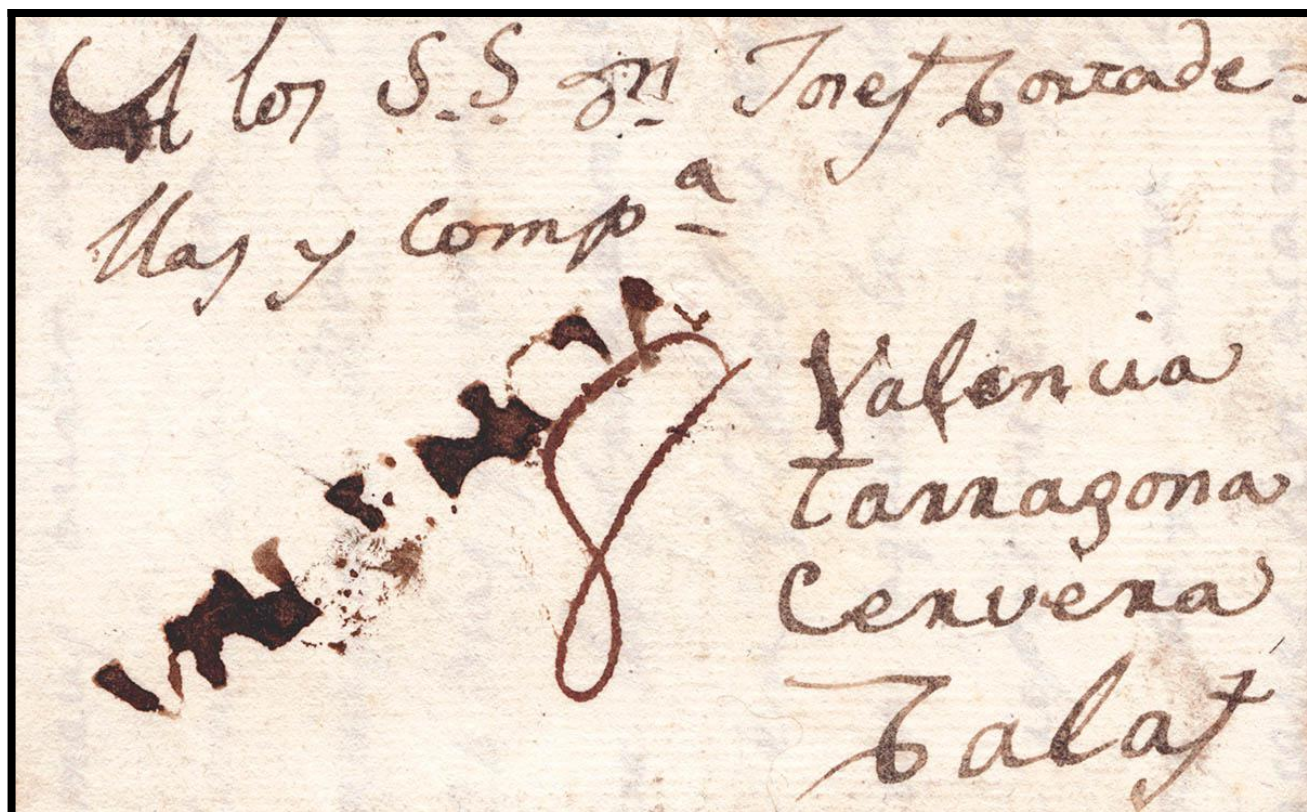 A los S.S. Dn. Josef Cortade-
llas y Compª
8
Valencia
Tarragona
Cervera
Calaf